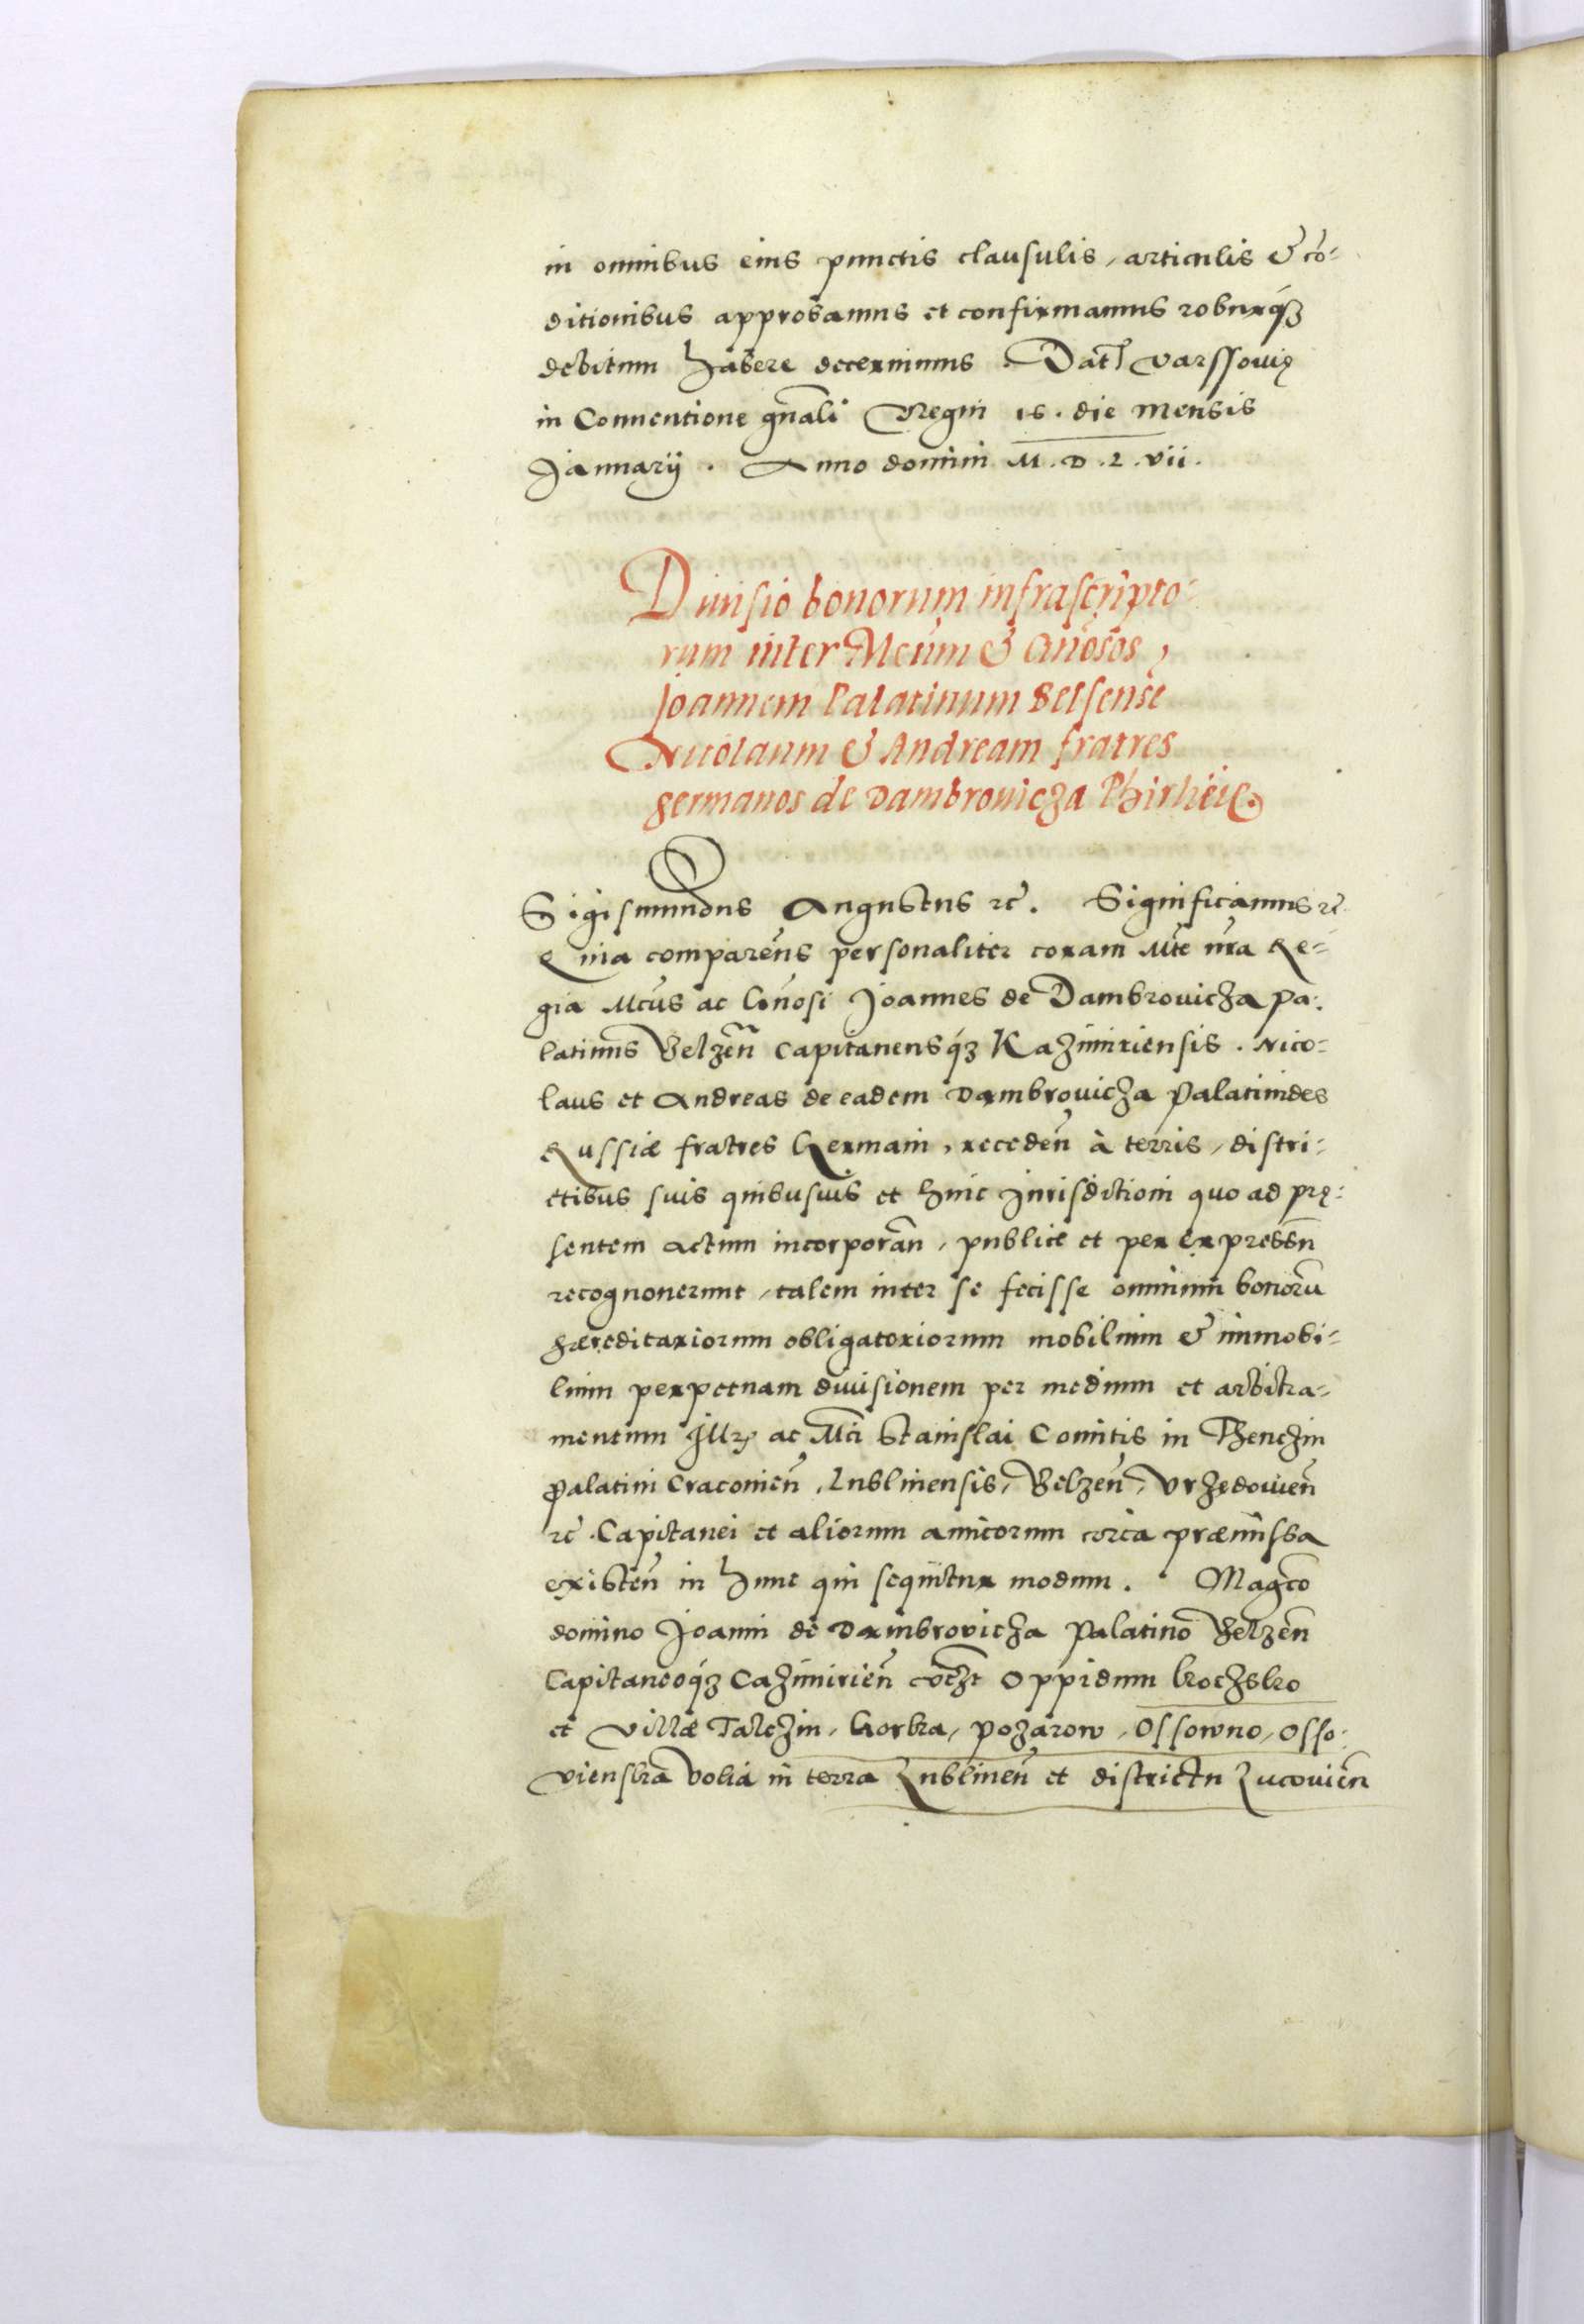 in omnibus eius punctis clausulis, articulis & cō-
ditionibus approbamus et confirmamus roburq3
debitum habere decernimus. Dat̄ Varssovię
in Conventione gn̄ali Regni 15. die mensis
Januarij. Anno domini M.D.L.vii.
Divisio bonorum infrascripto-
rum inter Mcum & Gn̄osos,
Joannem Palatinum Belsensē
Nicolaum & Andream fratres
germanos de Dambrovicza Phirlieie.
Sigismundus Augustus rc̄. Significamus rc̄.
Quia comparen̄s personaliter coram Mte nr̄a Re-
gia Mcus ac Gn̄osi Joannes de Dambrovicza Pa-
latinus Belzen̄ Capitaneusq3 Kazimiriensis. Nico-
laus et Andreas de eadem Dambrovicza Palatinides
Russiæ fratres Germani, receden̄ à terris, distri-
ctibus suis quibusvis et huic Jurisdictioni quo ad prę-
sentem actum incorporan̄, publicè et per expressū
recognoverunt, talem inter se fecisse omnium bonorū
hæreditariorum obligatoriorum mobilium & immobi-
lium perpetuam divisionem per medium et arbitra-
mentum Illr̄ ac Mci Stanislai Comitis in Thenczin
Palatini Cracovien̄, Lublinensis, Belzen̄, Urzędovien̄
rc̄. Capitanei et aliorum amicorum circa præmissa
existen̄ in hunc qui sequitur modum. Magco
domino Joanni de Dambrovicza Palatino Belzen̄
Capitaneoq3 Cazimirien̄ Oppidum Koczsko
et villæ Talczin, Gorka, Pozarow, Ossowno, Osso-
vienska Volia in terra Lublinen̄ et districtu Lucovien̄